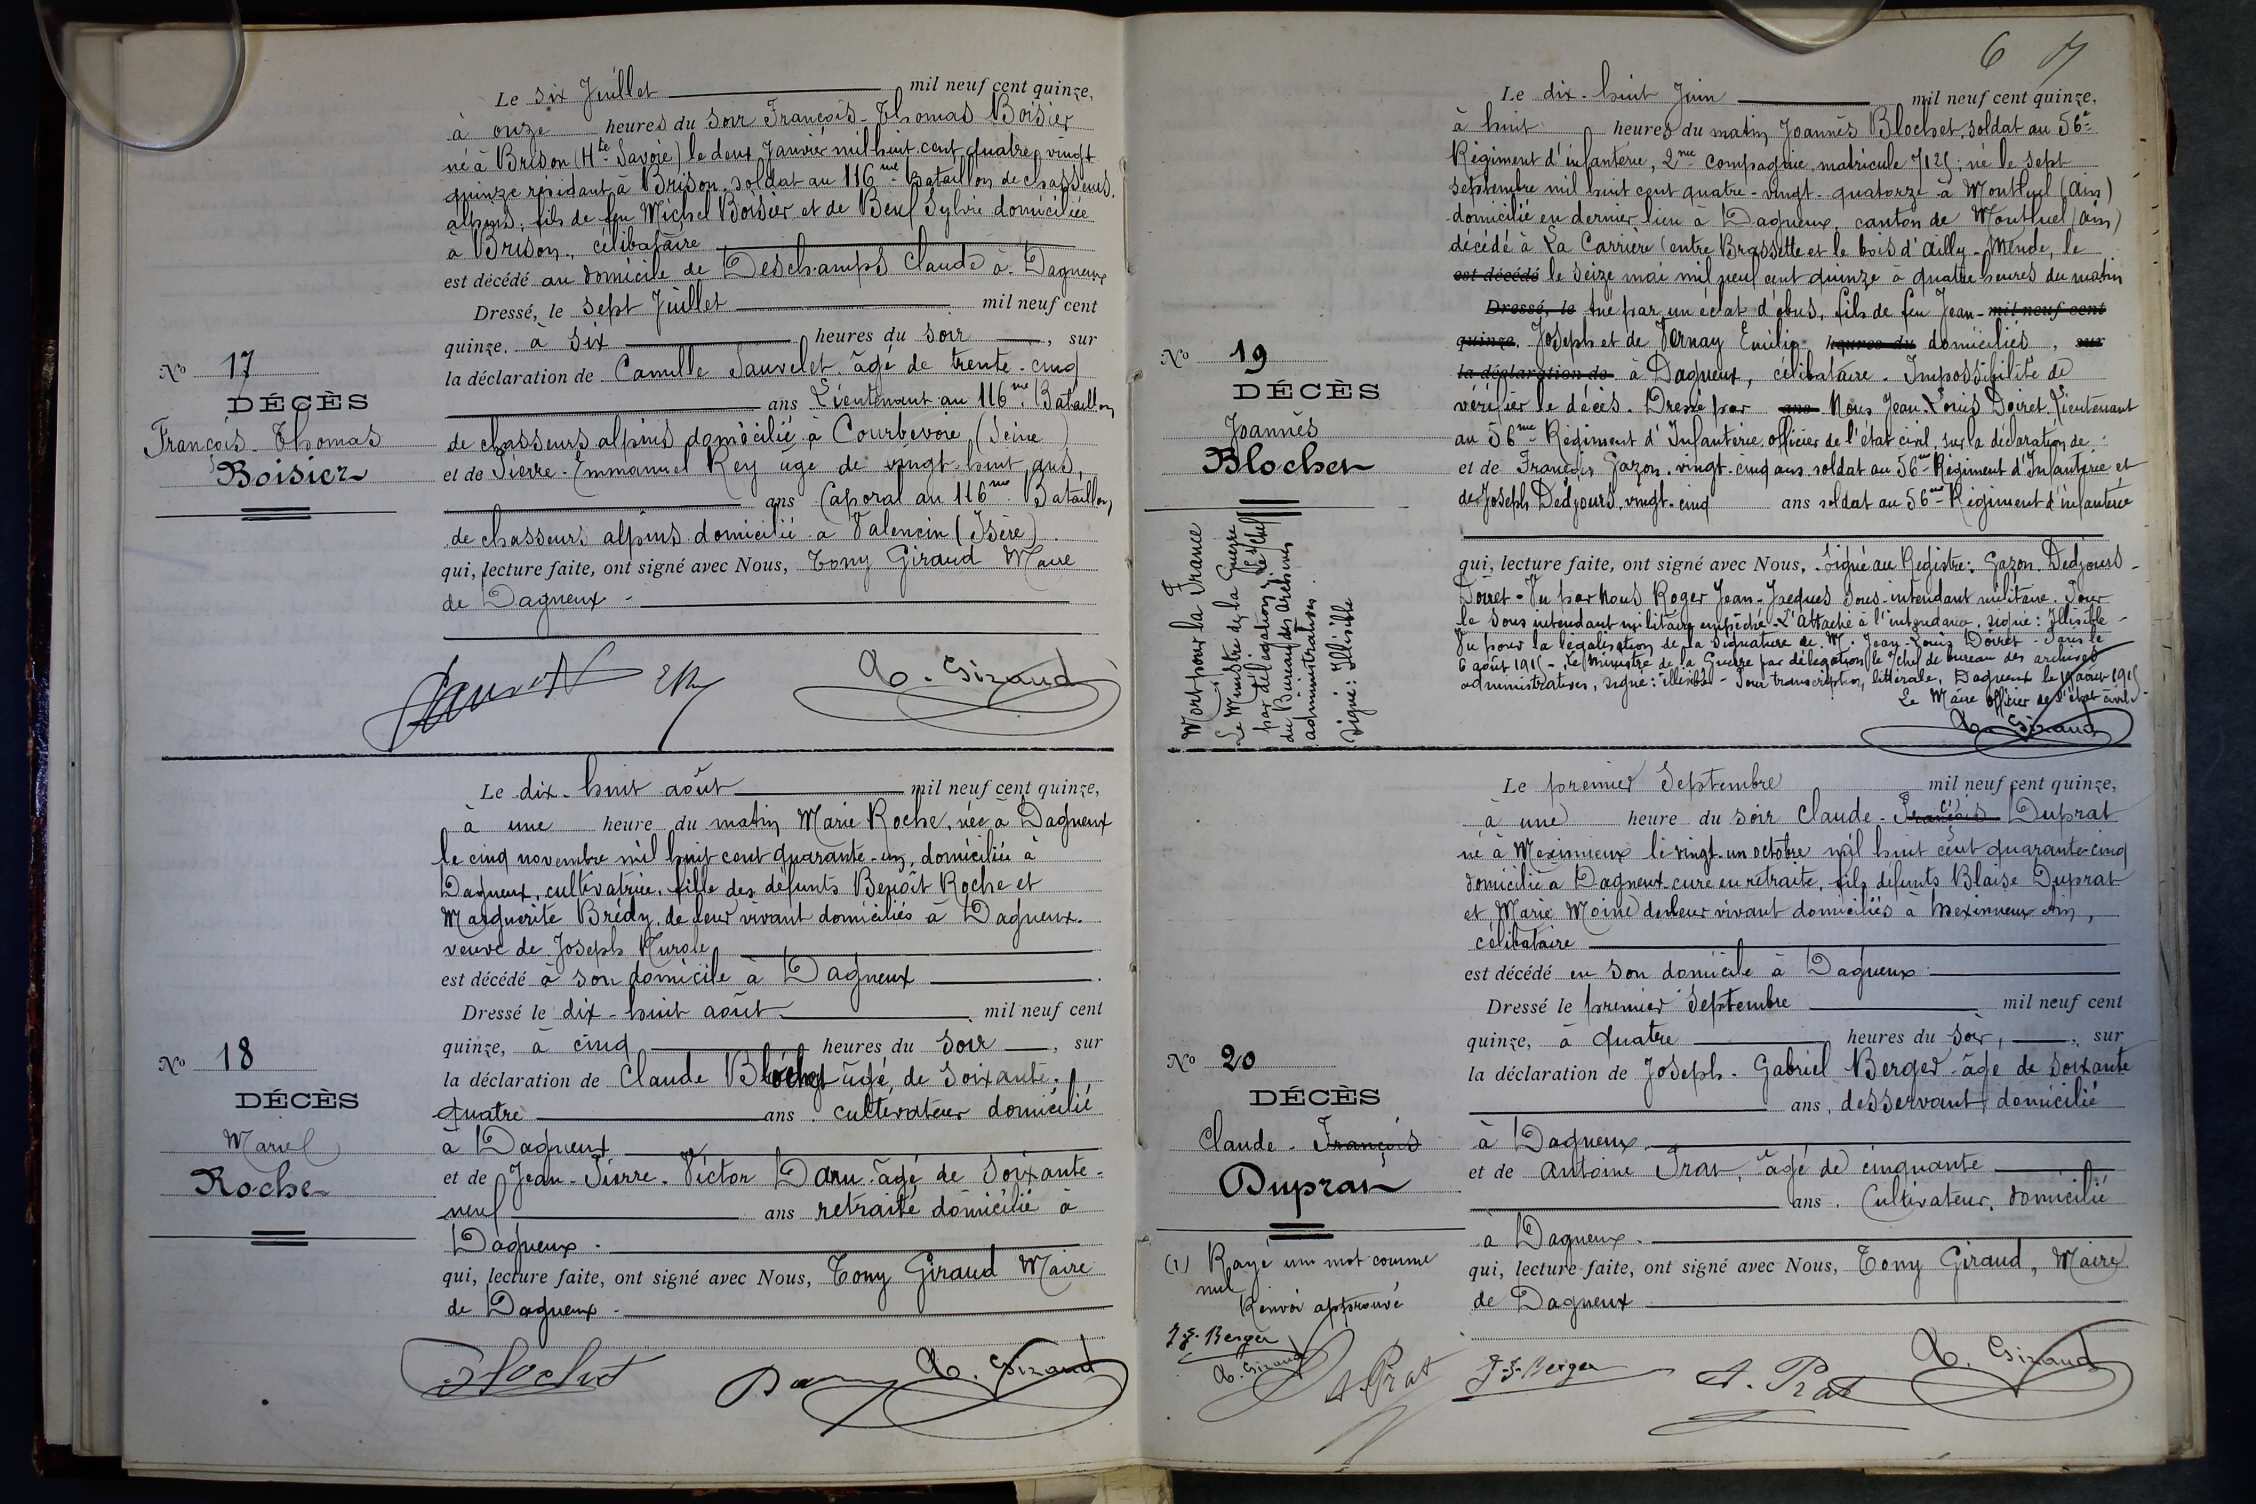 Le six Juillet mil neuf cent quinze,
à onze heures du soir François-Thomas Boisier
né à Brison (Hte Savoie) le deux Janvier mil huit cent quatre vingt
quinze résidant à Brison, soldat au 116me bataillon de chasseurs
alpins, fils de feu Michel Boisier et de Beuf Sylvie domiciliée
à Brison, célibataire
est décédé au domicile de Deschamps Claude à Dagneux
Dressé, le sept Juillet mil neuf cent
quinze, à six heures du soir, sur
la déclaration de Camille Sauvelet âgé de trente-cinq
ans Lieutenant au 116me Bataillon
de chasseurs alpins domicilié à Courbevoie (Seine)
et de Pierre-Emmanuel Rey âgé de vingt-huit ans,
ans Caporal au 116me Bataillon
de chasseurs alpins domicilié à Valencin (Isère)
qui, lecture faite, ont signé avec Nous, Tony Giraud Maire
de Dagneux -
No 17
DÉCÈS
François-Thomas
Boisier
T. Giraud
Le dix-huit août mil neuf cent quinze,
à une heure du matin Marie Roche, née à Dagneux
le cinq novembre mil huit cent quarante-un, domiciliée à
Dagneux, cultivatrice, fille des défunts Benoît Roche et
Marguerite Brédy, de leur vivant domiciliés à Dagneux.
veuve de Joseph
est décédé à son domicile à Dagneux
Dressé le dix-huit août mil neuf cent
quinze, à cinq heures du soir, sur
la déclaration de Claude Blochet âgé de soixante-
quatre ans cultivateur domicilié
à Dagneux
et de Jean-Pierre-Victor Daru âgé de soixante-
neuf ans retraité domicilié à
Dagneux.
qui, lecture faite, ont signé avec Nous, Tony Giraud Maire
de Dagneux -
No 18
DÉCÈS
Marie
Roche
Blochet
T. Giraud
6 7
Le dix-huit Juin mil neuf cent quinze,
à huit heures du matin, Joannès Blochet, soldat au 56e
Régiment d'infanterie, 2me compagnie matricule 7125; né le sept
septembre mil huit cent quatre-vingt-quatorze à Montluel (Ain)
domicilié en dernier lieu à Dagneux, canton de Montluel (Ain)
décédé à La Carrière (entre Brassette et le bois d'Ailly-Meuse, le
est décédé le seize mai mil neuf cent quinze à quatre heures du matin
Dressé, le tué par un éclat d'obus, fils de feu Jean- mil neuf cent
quinze, Joseph et de Vernay Emilie heures du domiciliés, sur
la déclaration de à Dagneux, célibataire. Impossibilité de
vérifier le décès. Dressé par ans Nous Jean-Louis Doiret, Lieutenant
au 56me Régiment d'Infanterie, officier de l'état civil, sur la déclaration de :
et de François Gazon, vingt-cinq ans, soldat au 56me Régiment d'Infanterie et
de Joseph Dedjours, vingt-cinq ans soldat au 56me Régiment d'infanterie
qui, lecture faite, ont signé avec Nous, Signé au Registre: Gazon. Dedjours -
Doiret - Vu par Nous Roger Jean-Jacques sous-intendant militaire. Pour
le sous intendant militaire empêché - L'attaché à l'intendance, signé: Illisible -
Vu pour la légalisation de la signature de M. Jean-Louis Doiret - Paris le
6 août 1915 - Le Ministre de la Guerre par délégation le chef de bureau des archives
administratives, signé: illisible - Pour transcription littérale, Dagneux le août 1915
Le Maire officier de l'état civil.
T. Giraud
No 19
DÉCÈS
Joannès
Blochet
Mort pour la France
Le Ministre de la Guerre
par délégation, le s/chef
du Bureau des archives
administratives.
Signé: Illisible
Le premier Septembre mil neuf cent quinze,
à une heure du soir Claude-François (1) Duprat
né à Meximieux le vingt-un octobre mil huit cent quarante-cinq
domicilié à Dagneux curé en retraite, fils défunts Blaise Duprat
et Marie Moine de leur vivant domiciliés à Meximieux Ain,
célibataire
est décédé en son domicile à Dagneux
Dressé le premier Septembre mil neuf cent
quinze, à quatre heures du soir, sur
la déclaration de Joseph-Gabriel Berger âgé de soixante
ans, desservant domicilié
à Dagneux
et de Antoine Prat, âgé de cinquante
ans. Cultivateur, domicilié
à Dagneux.
qui, lecture faite, ont signé avec Nous, Tony Giraud, Maire
de Dagneux
No 20
DÉCÈS
Claude-François
Duprat
(1) Rayé un mot comme
nul
Renvoi approuvé
J-G-Berger
T. Giraud
A. Prat
J-G-Berger
A. Prat
T. Giraud